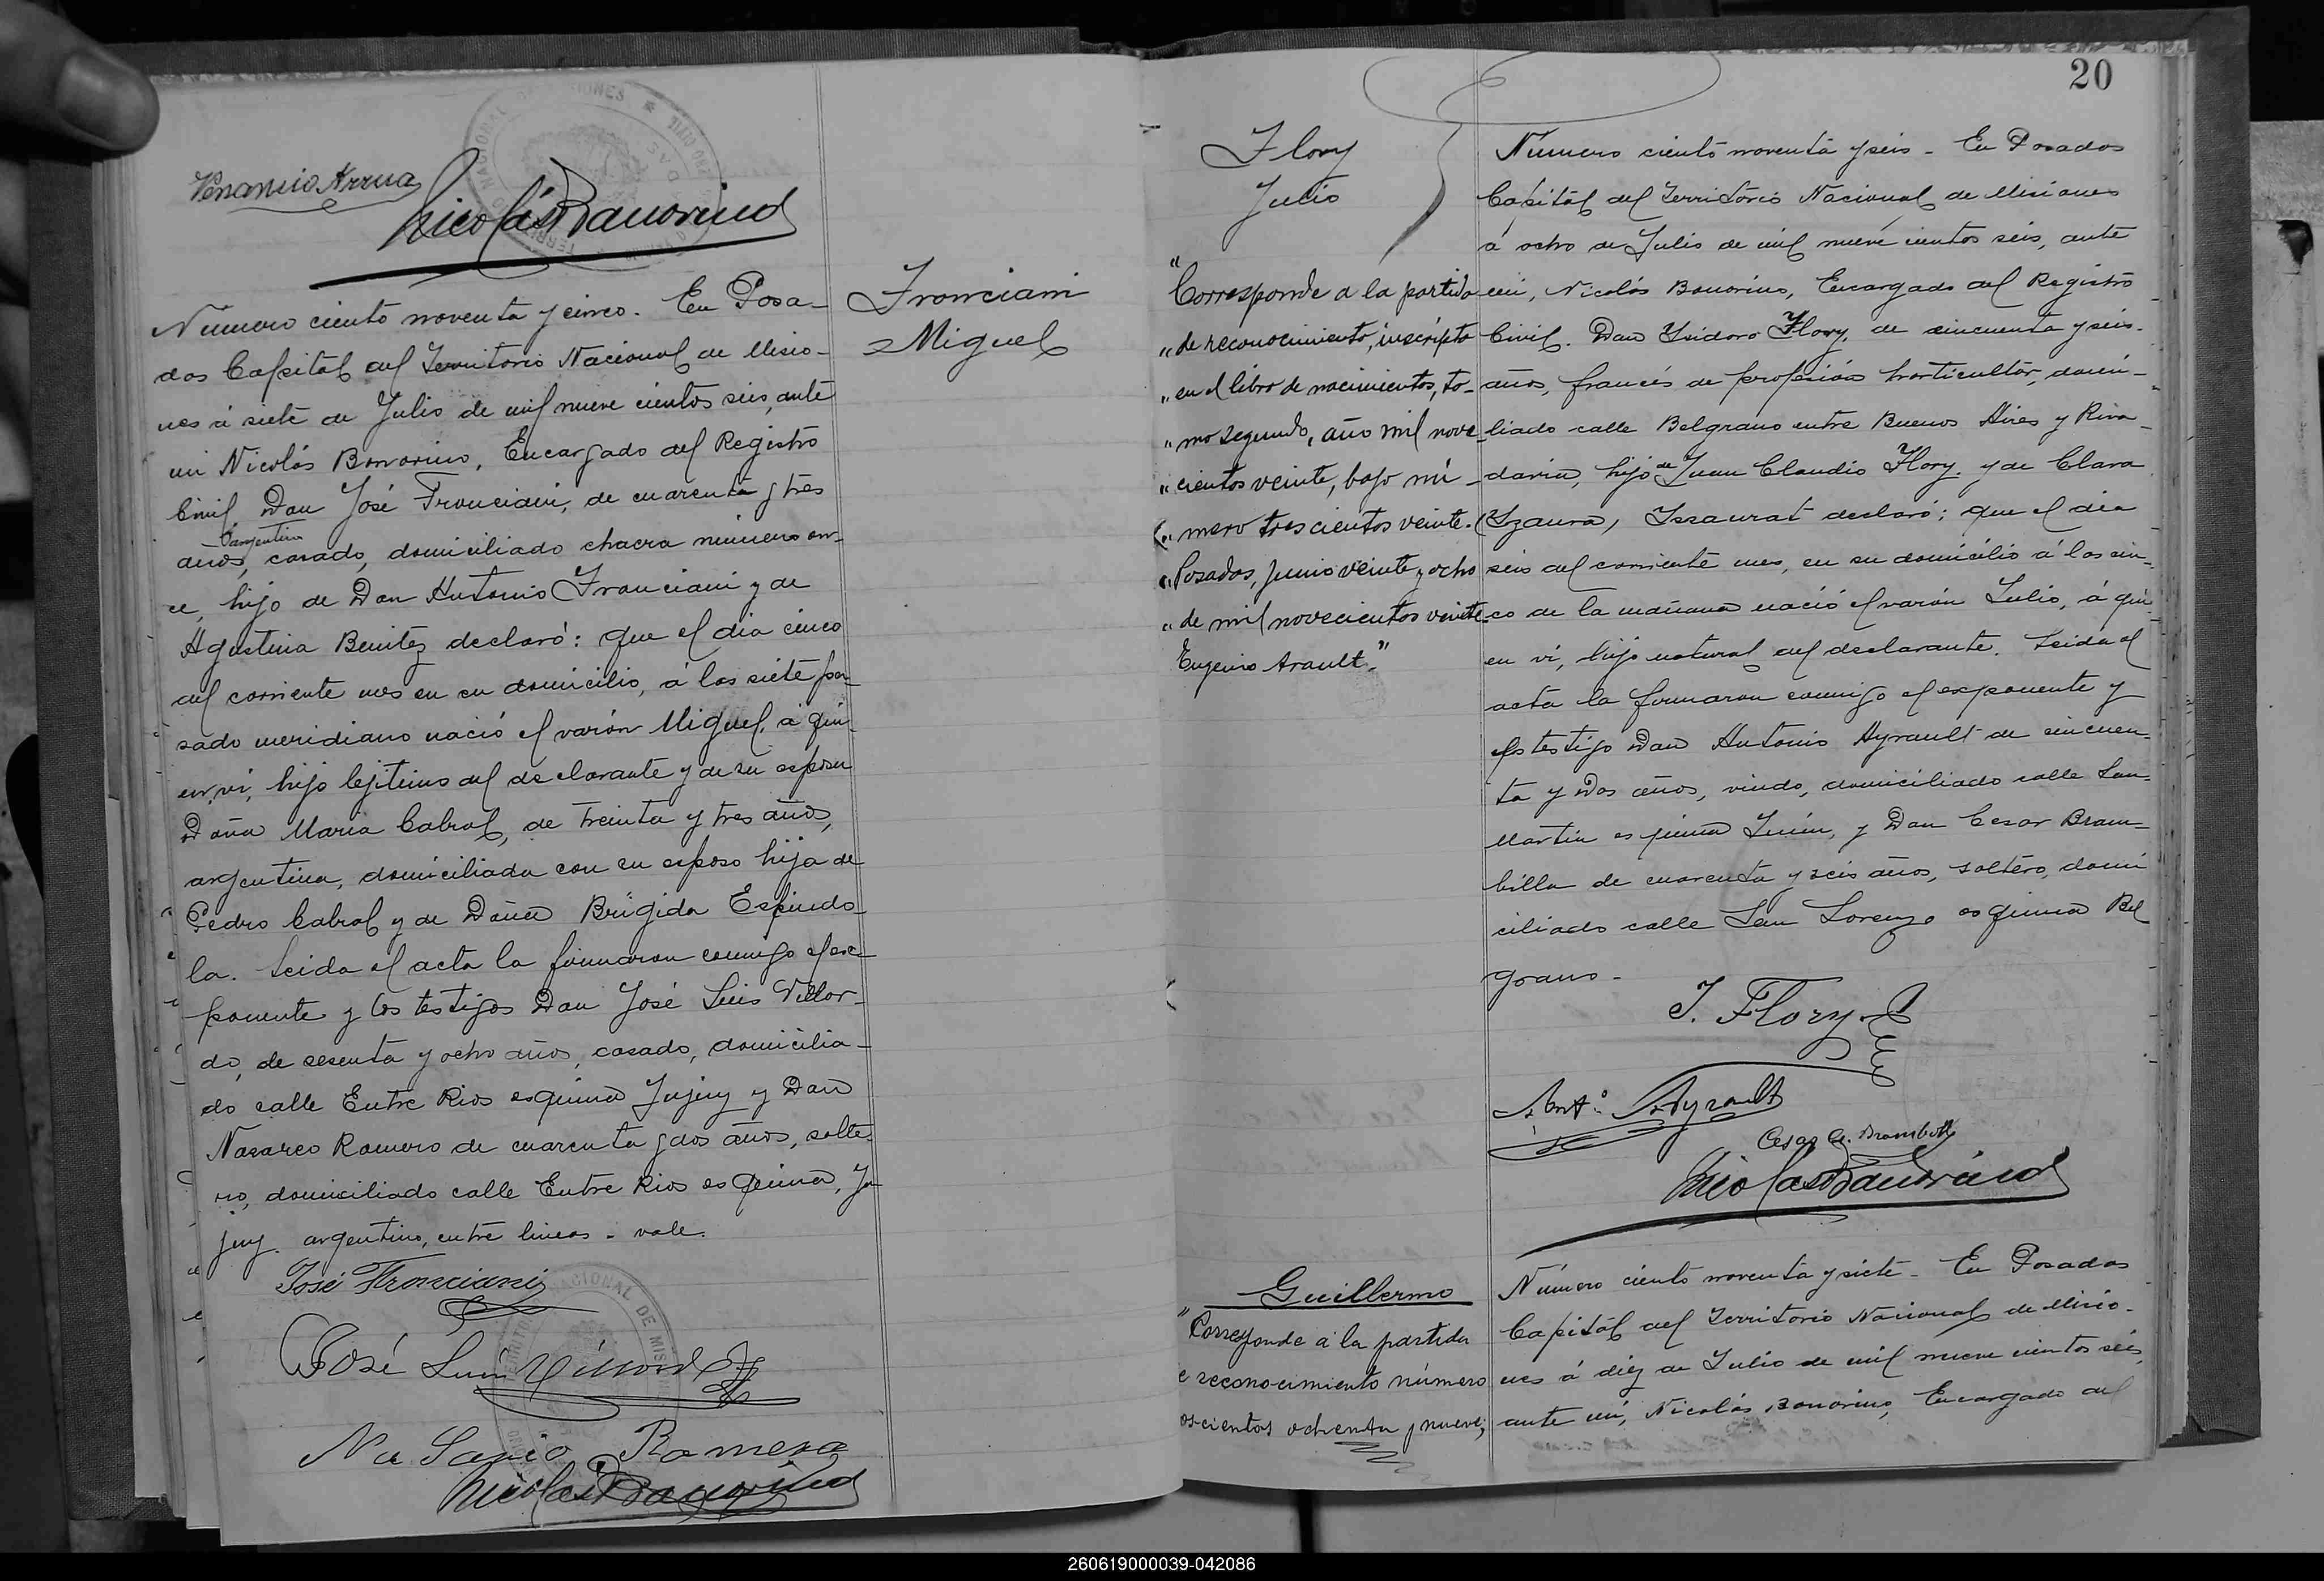 Venancio Arrua
Nicolás Bonorino
Franciani
Miguel
Numero ciento noventa y cinco. En Posa-
das Capital del Territorio Nacional de Misio-
nes á siete de Julio de mil nueve cientos seis, ante
mi Nicolás Bonorino, Encargado del Registro
Civil, Don José Franciani, de cuarenta y tres
argentino
años, casado, domiciliado chacra numero on-
ce, hijo de Don Antonio Franciani y de
Agustina Benitez declaró: que el dia cinco
del corriente mes en su domicilio, á las siete pa-
sado meridiano nació el varón Miguel, á qui-
en vi, hijo lejitimo del declarante y de su esposa
Doña Maria Cabral, de treinta y tres años,
argentina, domiciliada con su esposo hija de
Pedro Cabral y de Doña Brigida Espindo-
la. Leida el acta la firmaron conmigo el ex-
ponente y los testigos Don José Luis Villar-
do, de sesenta y ocho años, casado, domicilia-
do calle Entre Rios esquina Jujuy y Don
Nasareo Romero de cuarenta y dos años, solte-
ro, domiciliado calle Entre Rios esquina, Ju-
juy. argentino, entre lineas - vale.
José Franciani
José Luis
Romero
Nicolás Bonorino
20
Flory
Julio
"Corresponde a la partida
"de reconocimiento, inscripto
"en el libro de nacimientos, to-
"mo segundo, año mil nove-
"cientos veinte, bajo nú-
"mero trescientos veinte.
"Posadas, Junio veinte y ocho
"de mil novecientos veinte
Eugenio Arault."
Numero ciento noventa y seis - En Posadas
Capital del Territorio Nacional de Misiones
á ocho de Julio de mil nueve cientos seis, ante
mi, Nicolás Bonorino, Encargado del Registro
Civil. Don Ysidoro Flory, de cincuenta y seis
años, francés de profesión horticultor, domi-
liado calle Belgrano entre Buenos Aires y Riva-
davia, hijo de Juan Claudio Flory, y de Clara
(Yzaura) Issaurat declaró: que el dia
seis del corriente mes, en su domicilio á las cin-
co de la mañana nació el varón Julio, á qui-
en vi, hijo natural del declarante. Leida el
acta la firmaron conmigo el exponente y
los testigo Don Antonio Ayrault de cincuen-
ta y dos años, viudo, domiciliado calle San
Martin esquina Junin, y Don Cesar Bram-
billa de cuarenta y seis años, soltero, domi
ciliado calle San Lorenzo esquina Bel
grano -
I. Flory
Ant.º Ayrault
Cesar Brambilla
Nicolás Bonorino
Guillermo
"Corresponde a la partida
e reconocimiento número
oscientos ochenta y nueve;
Número ciento noventa y siete - En Posadas
Capital del Territorio Nacional de Misio-
nes á diez de Julio de mil nueve cientos seis,
ante mi, Nicolás Bonorino, Encargado del
260619000039-042086